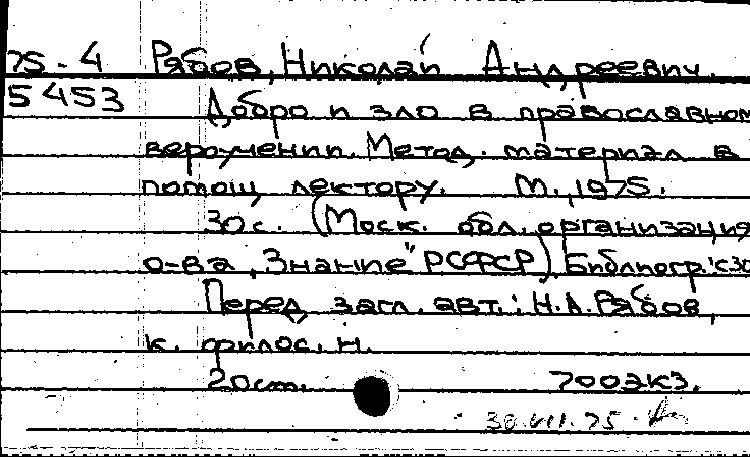 75-4 Рябов, Николай Андреевич.
5453 Добро и зло в православном
вероучении. Метод. материал в
помощ лектору. М., 1975.
30 с. (Моск. обл. организация
о-ва „Знание" РСФСР) Библиогр.: с30
Перед загл. авт.: Н.А. Рябов,
к. филос. н.
20 cm. 700экз.
30.VII.75.